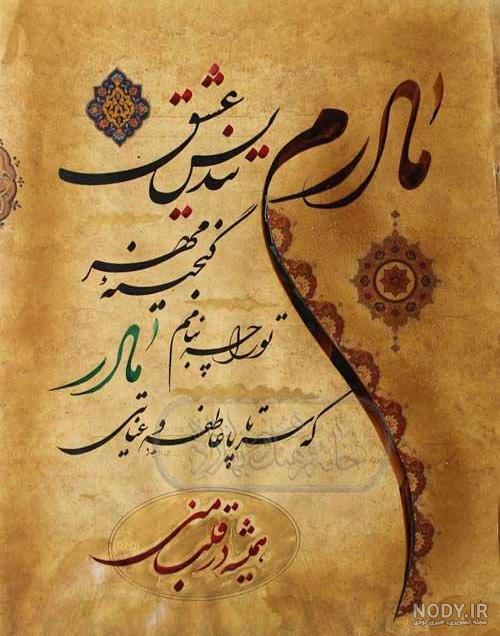 مادرم
تندیس عشق
گنجینهٔ مهر
تو را چه بنامم
مادر
که سر تا پا عاطفه و عنایتی
همیشه در قلب منی
NODY.IR
مجله تصویری، خبری نودی